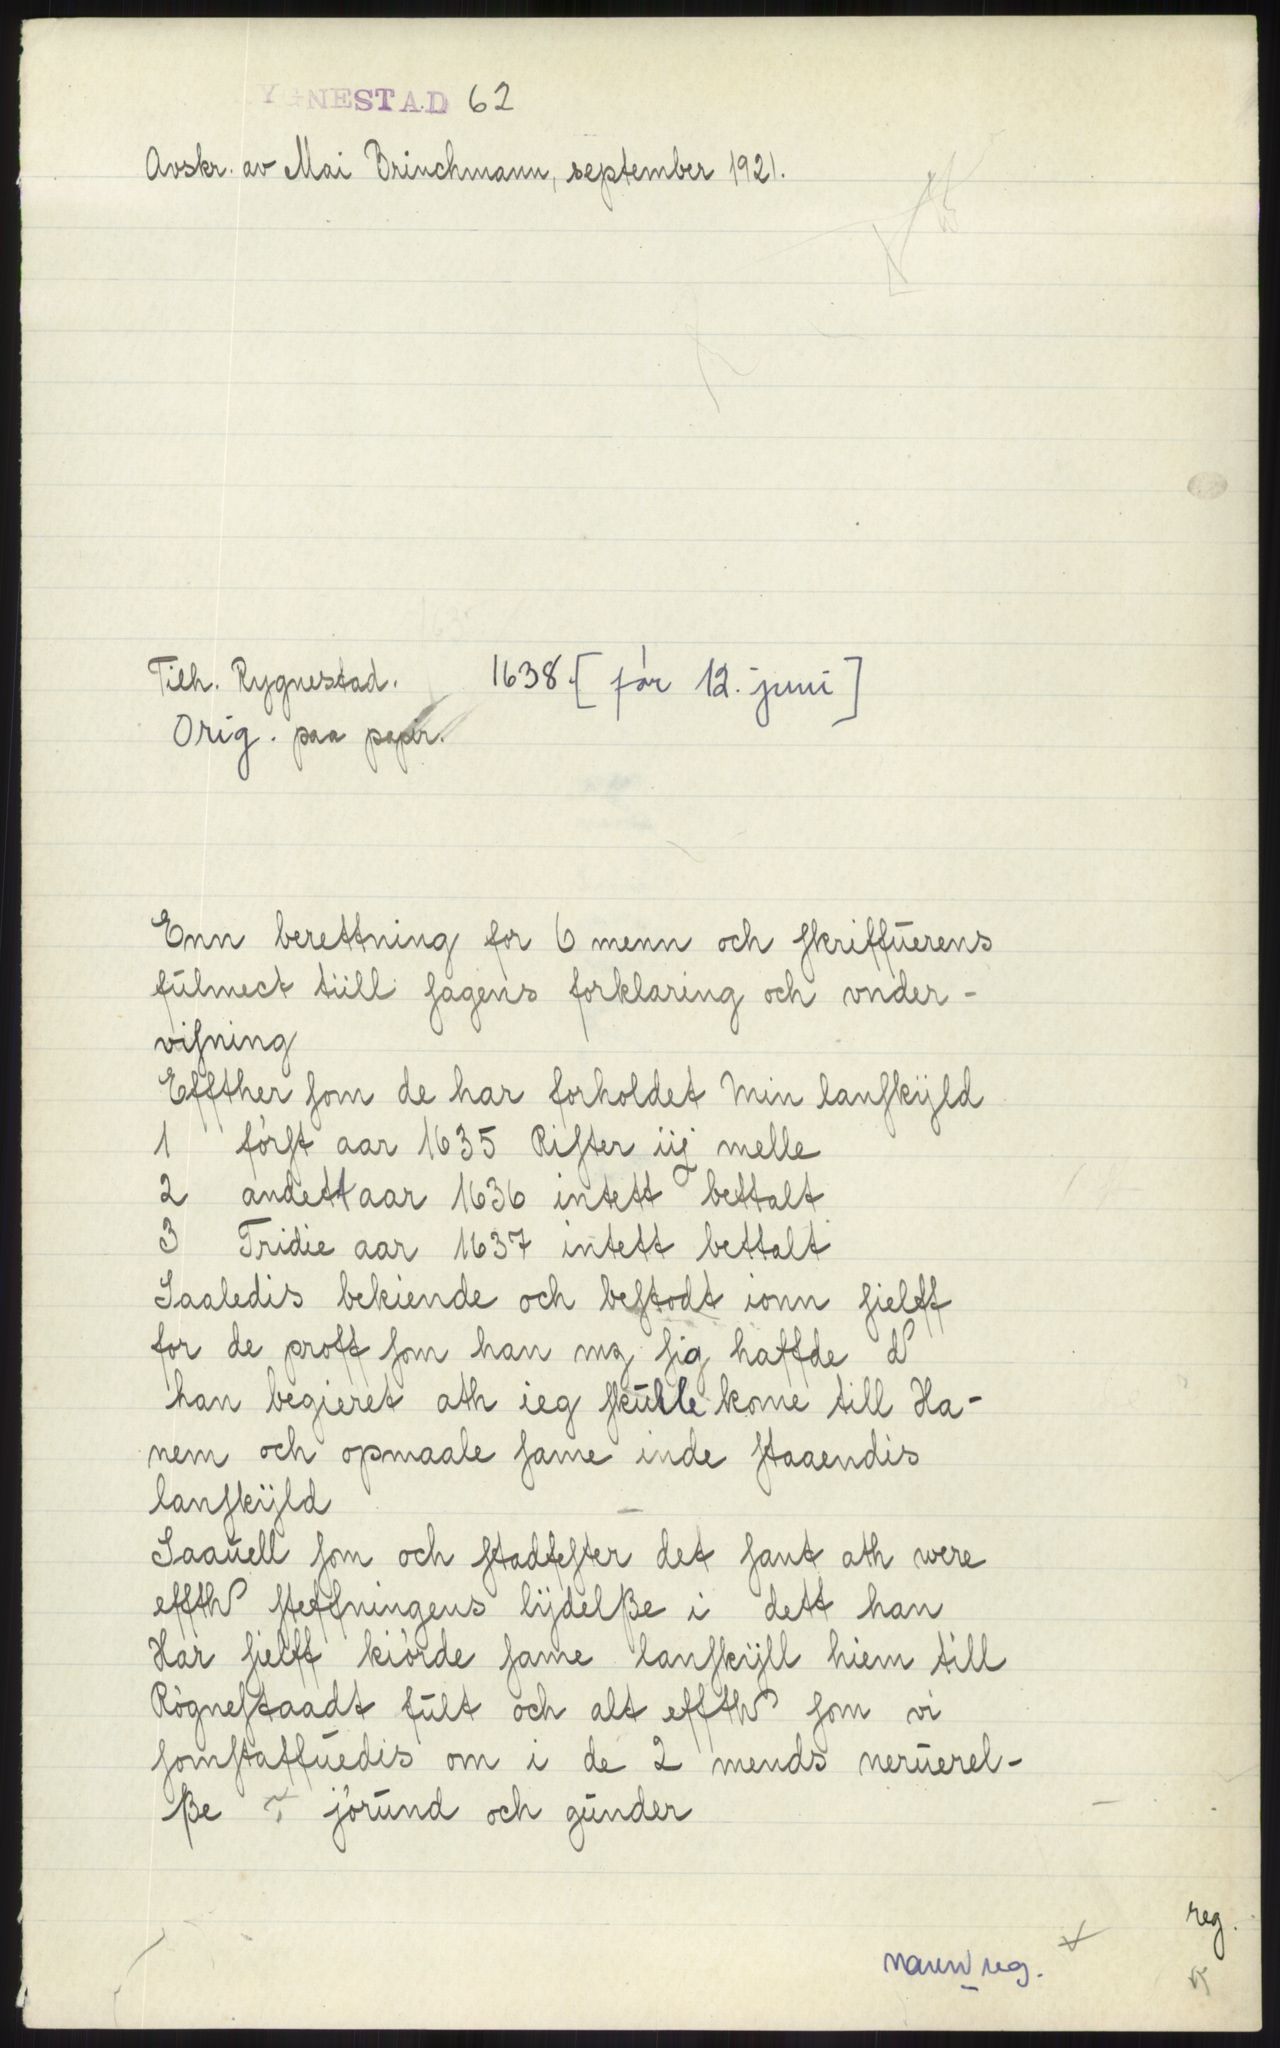 YGNESTAD 62
Avskr. av Mai Brinchmann, september 1921.
Tilh. Rygnestad. 1638. [før 12. juni]
Orig. paa papir.
Enn berettning for 6 menn och skriffuerens
fulmect tiill sagens forklaring och vnder-
visning
Effther som de har forholdet Min lanskÿld
1 først aar 1635 Rister iij melle
2 andett aar 1636 intett bettalt
3 Tridie aar 1637 intett bettalt
Saaledis bekiende och bestodt ionn sielff
for de proff som han mz sig haffde
han begieret ath ieg skulle kome till Ha-
nem och opmaale same inde staaendis
lanskÿld
Saauell som och stadfester det sant ath were
effth steffningens lÿdelße i dett han
Har sielff kiørde same lanskÿll hiem till
Røgnestaadt fult och alt effth som vi
somstaffuedis om i de 2 mends neruerel-
ße jørund och gunder
reg.
navnreg.